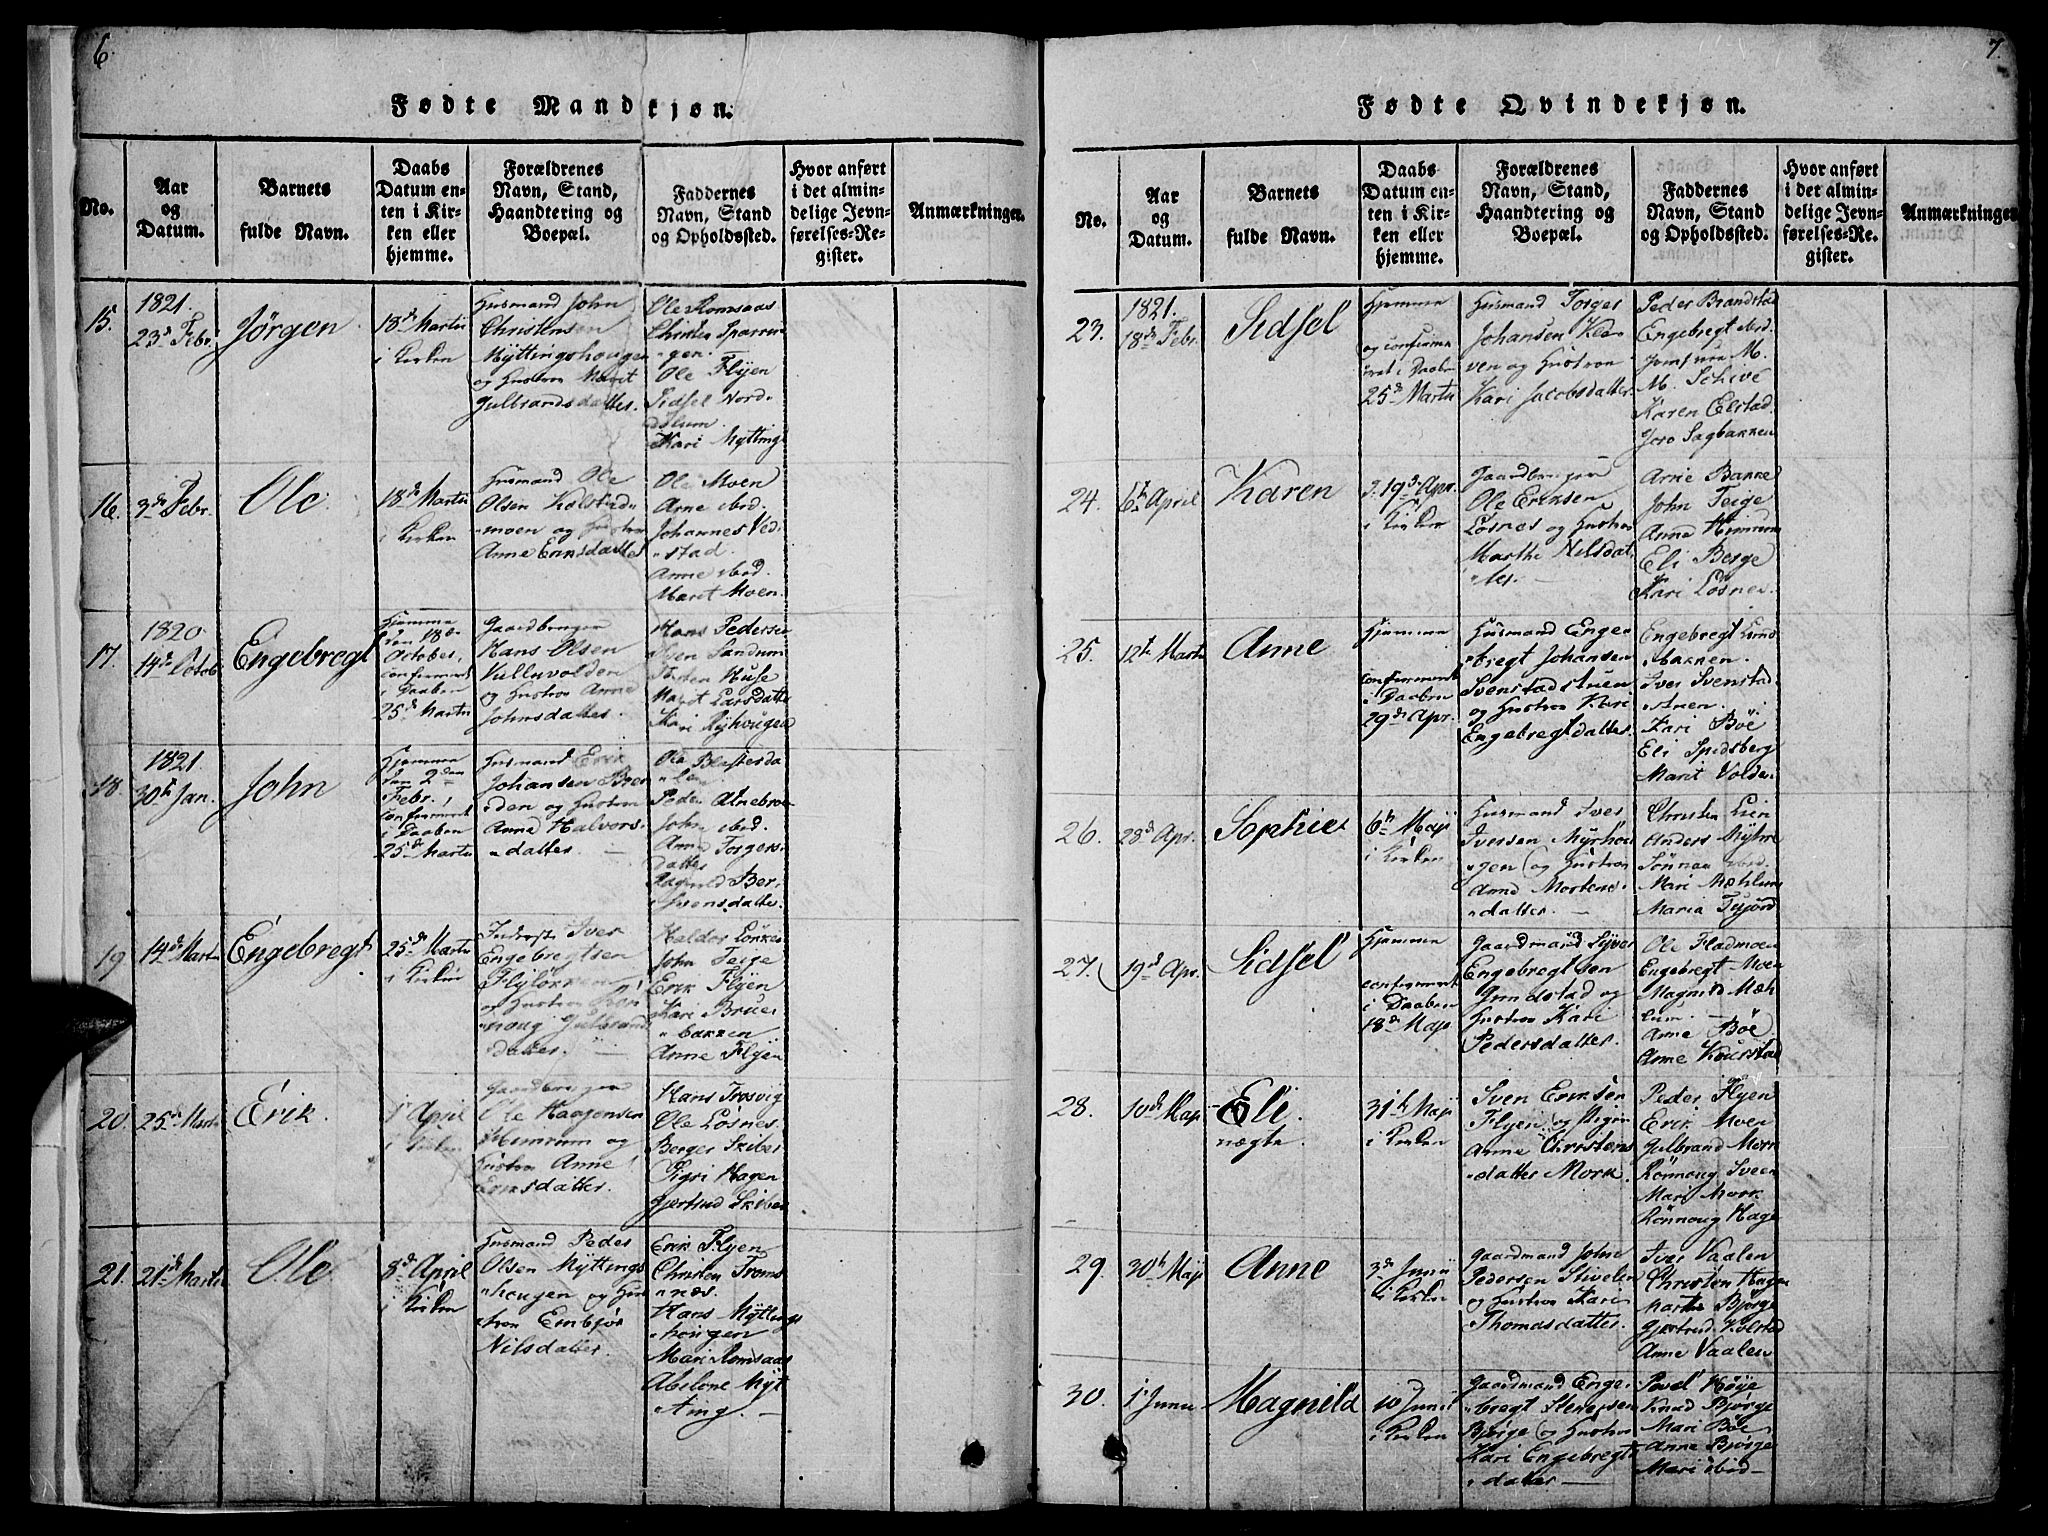 6.
Fødte Mandkjøn.
No.
Aar
og
Datum.
Barnets
fulde Navn.
Daabs
Datum en-
ten i Kir-
ken eller
hjemme.
Forældrenes
Navn, Stand,
Haandtering og
Boepæl.
Faddernes
Navn, Stand
og Opholdssted.
Hvor anført
i det almin-
delige Jevn-
førelses-Re-
gister.
Anmærkninger.
15.
1821.
23d Febr.
Jørgen
18d Martii
i Kirken
Husmand John
Christensen
Myttingshougen
og Hustroe Marit
Gulbrandsdatter.
Ole Romsaas
Christen Sparrun
"gen.
Ole Flÿen
Sidsel Nord-
Kari Mytting
16.
3d Febr.
Ole
18d Martii
i Kirken
Husmand Ole
Olsen Kolstad"
moen og Hustroe
Anne Eriksdatter
Ole Moen
Arne ibid.
Johannes Ved
"stad.
Anne ibid.
Marit Moen.
17.
1820.
14d Octob
Engebregt
Hjemme
den 18de
October,
confirmeret
i Daaben
25d Martii
Gaardbruger
Hans Olsen
Kulluvolden
og Hustroe Anne
Johnsdatter.
Hans Pedersen
Iver Sandum
Torsten Huse
Marit Larsdatter
Kari Ryhougen
18.
1821.
30te Jan.
John
Hjemme
den 2den
Febr.,
confirmeret
i Daaben
25d Martii
Husmand Erik
Johansen Bræn
"den og Hustroe
Anna Halvors-
"datter.
Ole Blestesda
"len
Peder Atnebroe
John ibid.
Anna Torgers-
datter
Ragnild Ber-
"svensdatter.
19.
14d Martii
Engebregt
25d Martii
i Kirken
Inderste Iver
Engebregtsen
Flyløkken
og Hustroe Røn
"noug Gulbrands
"datter.
Haldor Løkken
John Teige
Erik Flÿen
Kari Brue
"bakken
Anne Flÿen
20.
25d Martii
Erik.
1 April
i Kirken
Gaardbruger
Ole Haagensen
Heimrum og
Hustroe Anne
Eriksdatter.
Hans Trosvig
Ole Losnes.
Berger Skiber
Sigri Hagen
Gjertrud Skiber
21.
21d Martii
Ole
8d April
i Kirken
Husmand Peder
Olsen Myttings
"hougen og Hus
"troe Embjør
Nilsdatter.
Erik Flÿen
Christen Troms
"næs.
Hans Myttings
"hougen
Mari Romsaas
Abelone Myt
"ting.
7.
Fødte Qvindekjøn.
No.
Aar
og
Datum.
Barnets
fulde Navn.
Daabs
Datum en-
ten i Kir-
ken eller
hjemme.
Forældrenes
Navn, Stand,
Haandtering og
Boepæl.
Faddernes
Navn, Stand
og Opholdssted.
Hvor anført
i det almin-
delige Jevn-
førelses-Re-
gister.
Anmærkninger.
23.
1821.
18d Febr.
Sidsel
Hjemme
og confirme
eret i Daaben
25d Martii
Husmand Torger
Johansen Klø-
ven og Hustroe
Kari Jacobsdatter
Peder Brandstad
Engebregt ibid.
Jomfrue M.
M. Schive
Karen Elstad.
Joro Sagbakken
24.
6te April
Karen
19d Apr.
i Kirken
Gaardbruger
Ole Eriksen
Losnes og Hustroe
Marthe Nilsdat
"ter.
Arne Bakke
John Teige
Anna Heimrum
Eli Berge
Kari Losnes.
25.
12te Martii
Anne
Hjemme
confirmeret
i Daaben
29d Apr.
Husmand Enge
"bregt Johansen
Svenstadstuen
og Hustroe Kari
Engebregtdatter
Engebregt
"bakken.
Iver Svenstad-
stuen.
Kari Böe
Eli Spidsberg
Marit Volden
26.
28d Apr.
Sophie
6te Maji
i Kirken
Husmand Iver
Iversen Myrhou
"gen og Hustroe
Anne Mortens-
"datter.
Christen Lien
Anders Mÿhre
Sønnau ibid.
Mari Mæhlum
Maria
27.
19d Apr.
Sidsel
Hjemme
confirmeret
i Daaben
18d Maji
Gaardmand Syver
Engebregtsen
Grindstad og
Hustroe Kari
Pedersdatter.
Ole Fladmoen
Engebregt Moen
Magnild Mæh
lum.
Anne Böe
Anne
28.
10d Maji
Eli
uægte.
31te Maji
i Kirken
Sven Eriksen
Flÿen og Pigen
Anne Christens
"datter Mork.
Peder Flÿen
Erik Moen
Gulbrand Mork
Rønnoug Sveen
Mari Mork
Rønnoug Hage
29.
30te Maji
Anne
3d Junii
i Kirken
Gaardmand John
Pedersen Stivelen
og Hustroe Kari
Thomasdatter.
Iver Vaalen
Christen Hagen
Marthe Bjørge
Gjertrud Kolstad
Anne Vaalen
30.
1 Junii
Magnild
10 Junii
i Kirken
Gaardmand Enge-
"bregt Stenersen
Bjørge og Hustroe
Kari Engebregts
"datter
Povel Høÿe
Knud Bjørge
Mari Böe
Anne Bjørge
Mari ibid